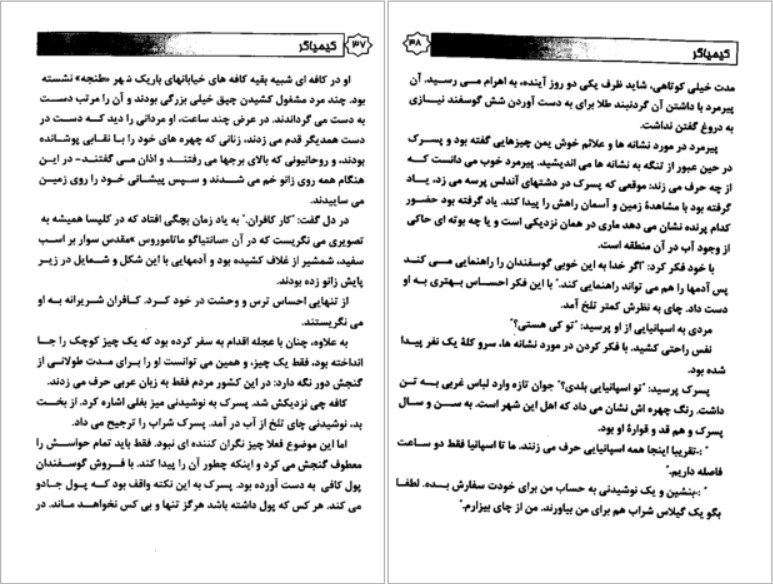 ۳۷ کیمیاگر
او در کافه ای شبیه بقیه کافه های خیابانهای باریک شهر «طنجه» نشسته
بود. چند مرد مشغول کشیدن چپق خیلی بزرگی بودند و آن را مرتب دست
به دست می گرداندند. در عرض چند ساعت، او مردانی را دید کـه دست در
دست همدیگر قدم می زدند، زنانی که چهره های خود را با نقابی پوشانده
بودند، و روحانیونی که بالای برجها می رفتنـد و اذان مـی گفتنـد- در ایـن
هنگام همه روی زانو خم می شـدند و سـپس پیشـانی خـود را روی زمـین
می ساییدند.
در دل گفت: "کار کافران." به یاد زمان بچگی افتاد که در کلیسا همیشه به
تصویری می نگریست که در آن «سانتیاگو ماتاموروس »مقدس سوار بر اسب
سفید، شمشیر از غلاف کشیده بود و آدمهایی با این شکل و شمـایل در زیـر
پایش زانو زده بودند.
از تنهایی احساس ترس و وحشت در خود کـرد. کـافران شـریرانه بـه او
می نگریستند.
به علاوه، چنان با عجله اقدام به سفر کرده بود که یک چیز کوچک را جـا
انداخته بود، فقط یک چیز، و همین می توانست او را بـرای مـدت طولانـی از
گنجش دور نگه دارد: در این کشور مردم فقط به زبان عربی حرف می زدند.
کافه چی نزدیکش شد. پسرک به نوشیدنی میز بغلی اشاره کرد. از بخـت
بد، نوشیدنی چای تلخ از آب در آمد. پسرک شراب را ترجیح می داد.
اما این موضوع فعلا چیز نگران کننده ای نبود. فقط باید تمام حواسـش را
معطوف گنجش می کرد و اینکه چطور آن را پیدا کند. با فـروش گوسـفندان
پول کافی به دست آورده بود. پسرک به این نکته واقف بود کـه پـول جـادو
می کند. هر کس که پول داشته باشد هرگز تنها و بی کس نخواهـد مانـد. در
۳۸ کیمیاگر
مدت خیلی کوتاهی، شاید ظرف یکی دو روز آینده، به اهرام مـی رسـید. آن
پیرمرد با داشتن آن گردنبند طلا برای به دست آوردن شش گوسفند نیـازی
به دروغ گفتن نداشت.
پیرمرد در مورد نشانه ها و علائم خوش یمن چیزهایی گفته بود و پسـرک
در حین عبور از تنگه به نشانه ها می اندیشید. پیرمرد خوب می دانست کـه
از چه حرف می زند: موقعی که پسرک در دشتهای آندلس پرسه می زد، یـاد
گرفته بود با مشاهدهٔ زمین و آسمان راهش را پیدا کند. یاد گرفته بود حضـور
کدام پرنده نشان می دهد ماری در همان نزدیکی است و یا چه بوته ای حاکی
از وجود آب در آن منطقه است.
با خود فکر کرد: "اگر خدا به این خوبی گوسفندان را راهنمایی مـی کنـد
پس آدمها را هم می تواند راهنمایی کند." با این فکـر احسـاس بهتـری بـه او
دست داد. چای به نظرش کمتر تلخ آمد.
مردی به اسپانیایی از او پرسید: "تو کی هستی؟"
نفس راحتی کشید. با فکر کردن در مورد نشانه ها، سرو کلهٔ یک نفر پیـدا
شده بود.
پسرک پرسید: "تو اسپانیایی بلدی؟" جوان تازه وارد لباس غربی بـه تـن
داشت. رنگ چهره اش نشان می داد که اهل این شهر است. بـه سـن و سـال
پسرک و هم قد و قوارهٔ او بود.
" :-تقریبا اینجا همه اسپانیایی حرف می زنند. ما تـا اسپانیا فقط دو ساعت
فاصله داریم."
" :-بنشین و یک نوشیدنی به حساب من برای خودت سفارش بـده. لطفـا
بگو یک گیلاس شراب هم برای من بیاورند. من از چای بیزارم."